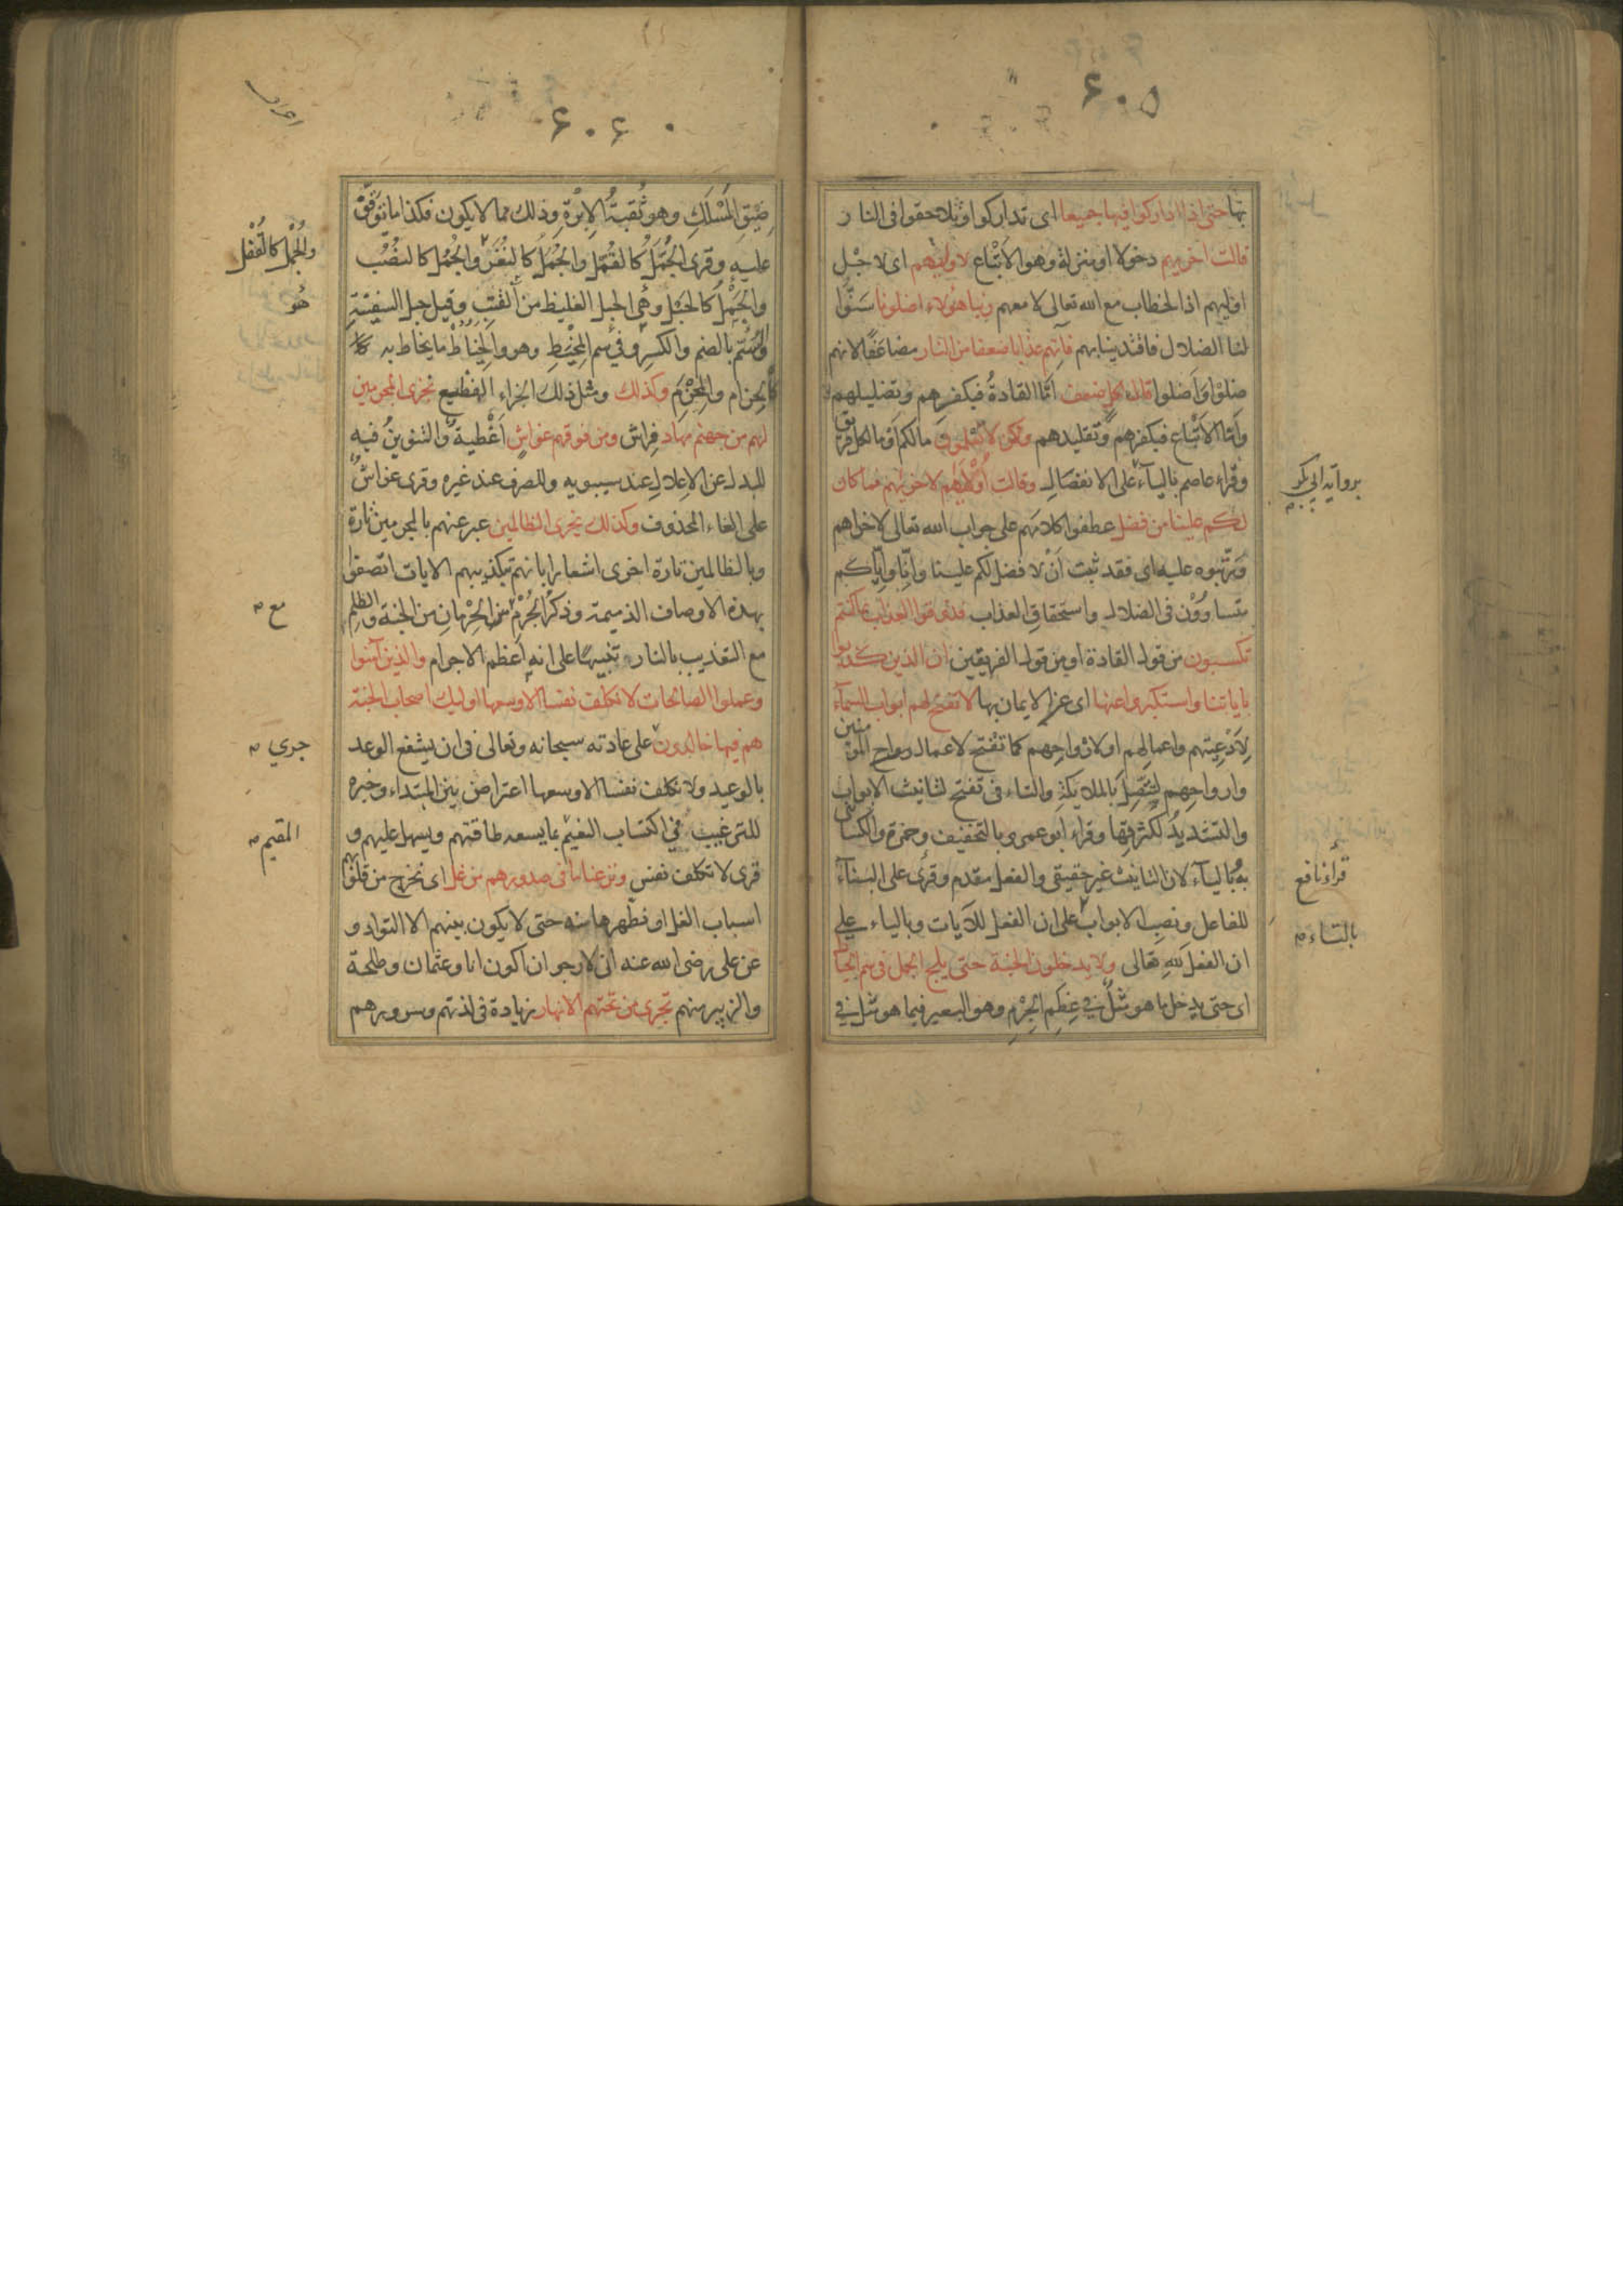 ۶۰۵
بها حتى اذا اداركوا فيها جميعا اى تداركوا وتلاحقوا فى النار
قالت اخريهم دخولا او منزلة وهو الاتباع لاوليهم اى لاجل
اوليهم اذ الخطاب مع الله تعالى لا معهم ربنا هؤلاء اضلونا سنّوا
لنا الضلال فاقتدينا بهم فآتهم عذابا ضعفا من النار مضاعفا لانهم
ضلوا واضلوا قال لكل ضعف امّا القادةُ فبكفرهم وتضليلهم
وامّا الاتباع فبكفرهم وتقليدهم ولكن لا تعلمون مالكم او ما لكل فريق
وقراء عاصم بالياء على الانفصال وقالت أوليهم لاخريهم فما كان
برواية ابي بكر
لكم علينا من فضل عطفوا كلامهم على جواب الله تعالى لاخراهم
ورتبوه عليه اى فقد ثبت أنْ لا فضل لكم علينا وانّا وايّاكم
متساوُوْن فى الضلال واستحقاق العذاب فذوقوا العذاب بما كنتم
تكسبون من قول القادة او من قول الفريقين ان الذين كذبوا
باياتنا واستكبروا عنها اى عن الايمان بها لا تفتح لهم ابواب السماء
لِاَدْعِيَتهم واعمالِهم او لارْواحِهم كما تفتح لاعمال وارواح المؤمنين
وارواحِهم لتتّصِلَ بالملايكةِ والتاء فى تفتح لتانيث الابواب
والتشديدُ لكثرتِها وقراء ابو عمرو بالتخفيف وحمزة والكسائى
به وبالياء لان التانيث غير حقيقى والفعل مقدم وقرئ على البناء
قرأ نافع
للفاعل ونصبِ الابواب على ان الفعل للآيات وبالياء على
بالتاء
ان الفعل للهِ تعالى ولا يدخلون الجنة حتى يلج الجمل فى سم الخياط
اى حتى يدخل ما هو مثلٌ فى عِظَمِ الجِرْمِ وهو البعير فيما هو مثل فى
۶۰۶
ضيق المسْلكِ وهو ثُقبةُ الاِبْرةِ وذلك مما لا يكون فكذا ما توقّف
عليه وقرئ الجُمّل كالقُمّل والجُمَل كالنُغَر والجُمُل كالنُصُب
والجُمْل كالقُفْل
والجَمْل كالحَبْل وهى الحبل الغليظ من القنّب وقيل حبل السفينةِ
هُو
وسُمّ بالضم والكسر وفى سم المِخْيَطِ وهو والخِياطُ ما يخاط به
كالحِزام والمِحْزَم وكذلك ومثل ذلك الجزاء الفظيع نجزى المجرمين
لهم من جهنم مهاد فِراش ومن فوقهم غواشٍ اَغْطية والتنوينُ فيه
للبدل عن الاِعلالِ عند سيبويه وللصرف عند غيره وقرى غواشٌ
على الغاء المحذوف وكذلك نجزى الظالمين عبر عنهم بالمجرمين تارة
وبالظالمين تارة اخرى اشعارا بانهم بتكذيبهم الايات اتصفوا
بهذه الاوصاف الذميمة وذكرُ الجُرْمِ من الحِرْمانِ من الجنة والظلم
مع
مع التعذيب بالنار تنبيها على انه اعظم الاجرام والذين آمنوا
وعملوا الصالحات لا نكلف نفسا الا وسعها اوليك اصحاب الجنة
هم فيها خالدون على عادته سبحانه وتعالى فى ان يشفع الوعد
جري
بالوعيد ولا نكلف نفسا الا وسعها اعتراض بين المبتداء وخبره
للترغيب فى اكتساب النعيم بما يسعه طاقتهم ويسهل عليهم و
المقيم
قرى لا تكلف نفس ونزعنا ما فى صدورهم من غل اى نخرج من قلوبهم
اسباب الغل او نطهرها منه حتى لا يكون بينهم الا التواد و
عن على رضى الله عنه انى لارجو ان اكون انا وعثمان وطلحة
والزبير منهم تجرى من تحتهم الانهار زيادة فى لذتهم وسرورهم